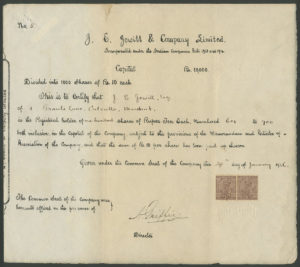 No 5
J. C. Jewitt & Company Limited.
Incorporated under the Indian Companies Acts
Capital Rs. 10,000.
Divided into 1000 shares of Rs 10 each
This is to Certify that J. C. Jewitt, Esq
of Lane, Calcutta, Merchant,
is the Registered holder of one hundred shares of Rupees Ten Each Numbered 601 to 700
both inclusive in the Capital of the Company, subject to the provisions of the Memorandum and Articles of
Association of the Company, and that the sum of Rs 10 per share has been paid up thereon
Given under the Common Seal of the Company this day of January
The Common Seal of the Company was
hereunto affixed in the presence of
Director